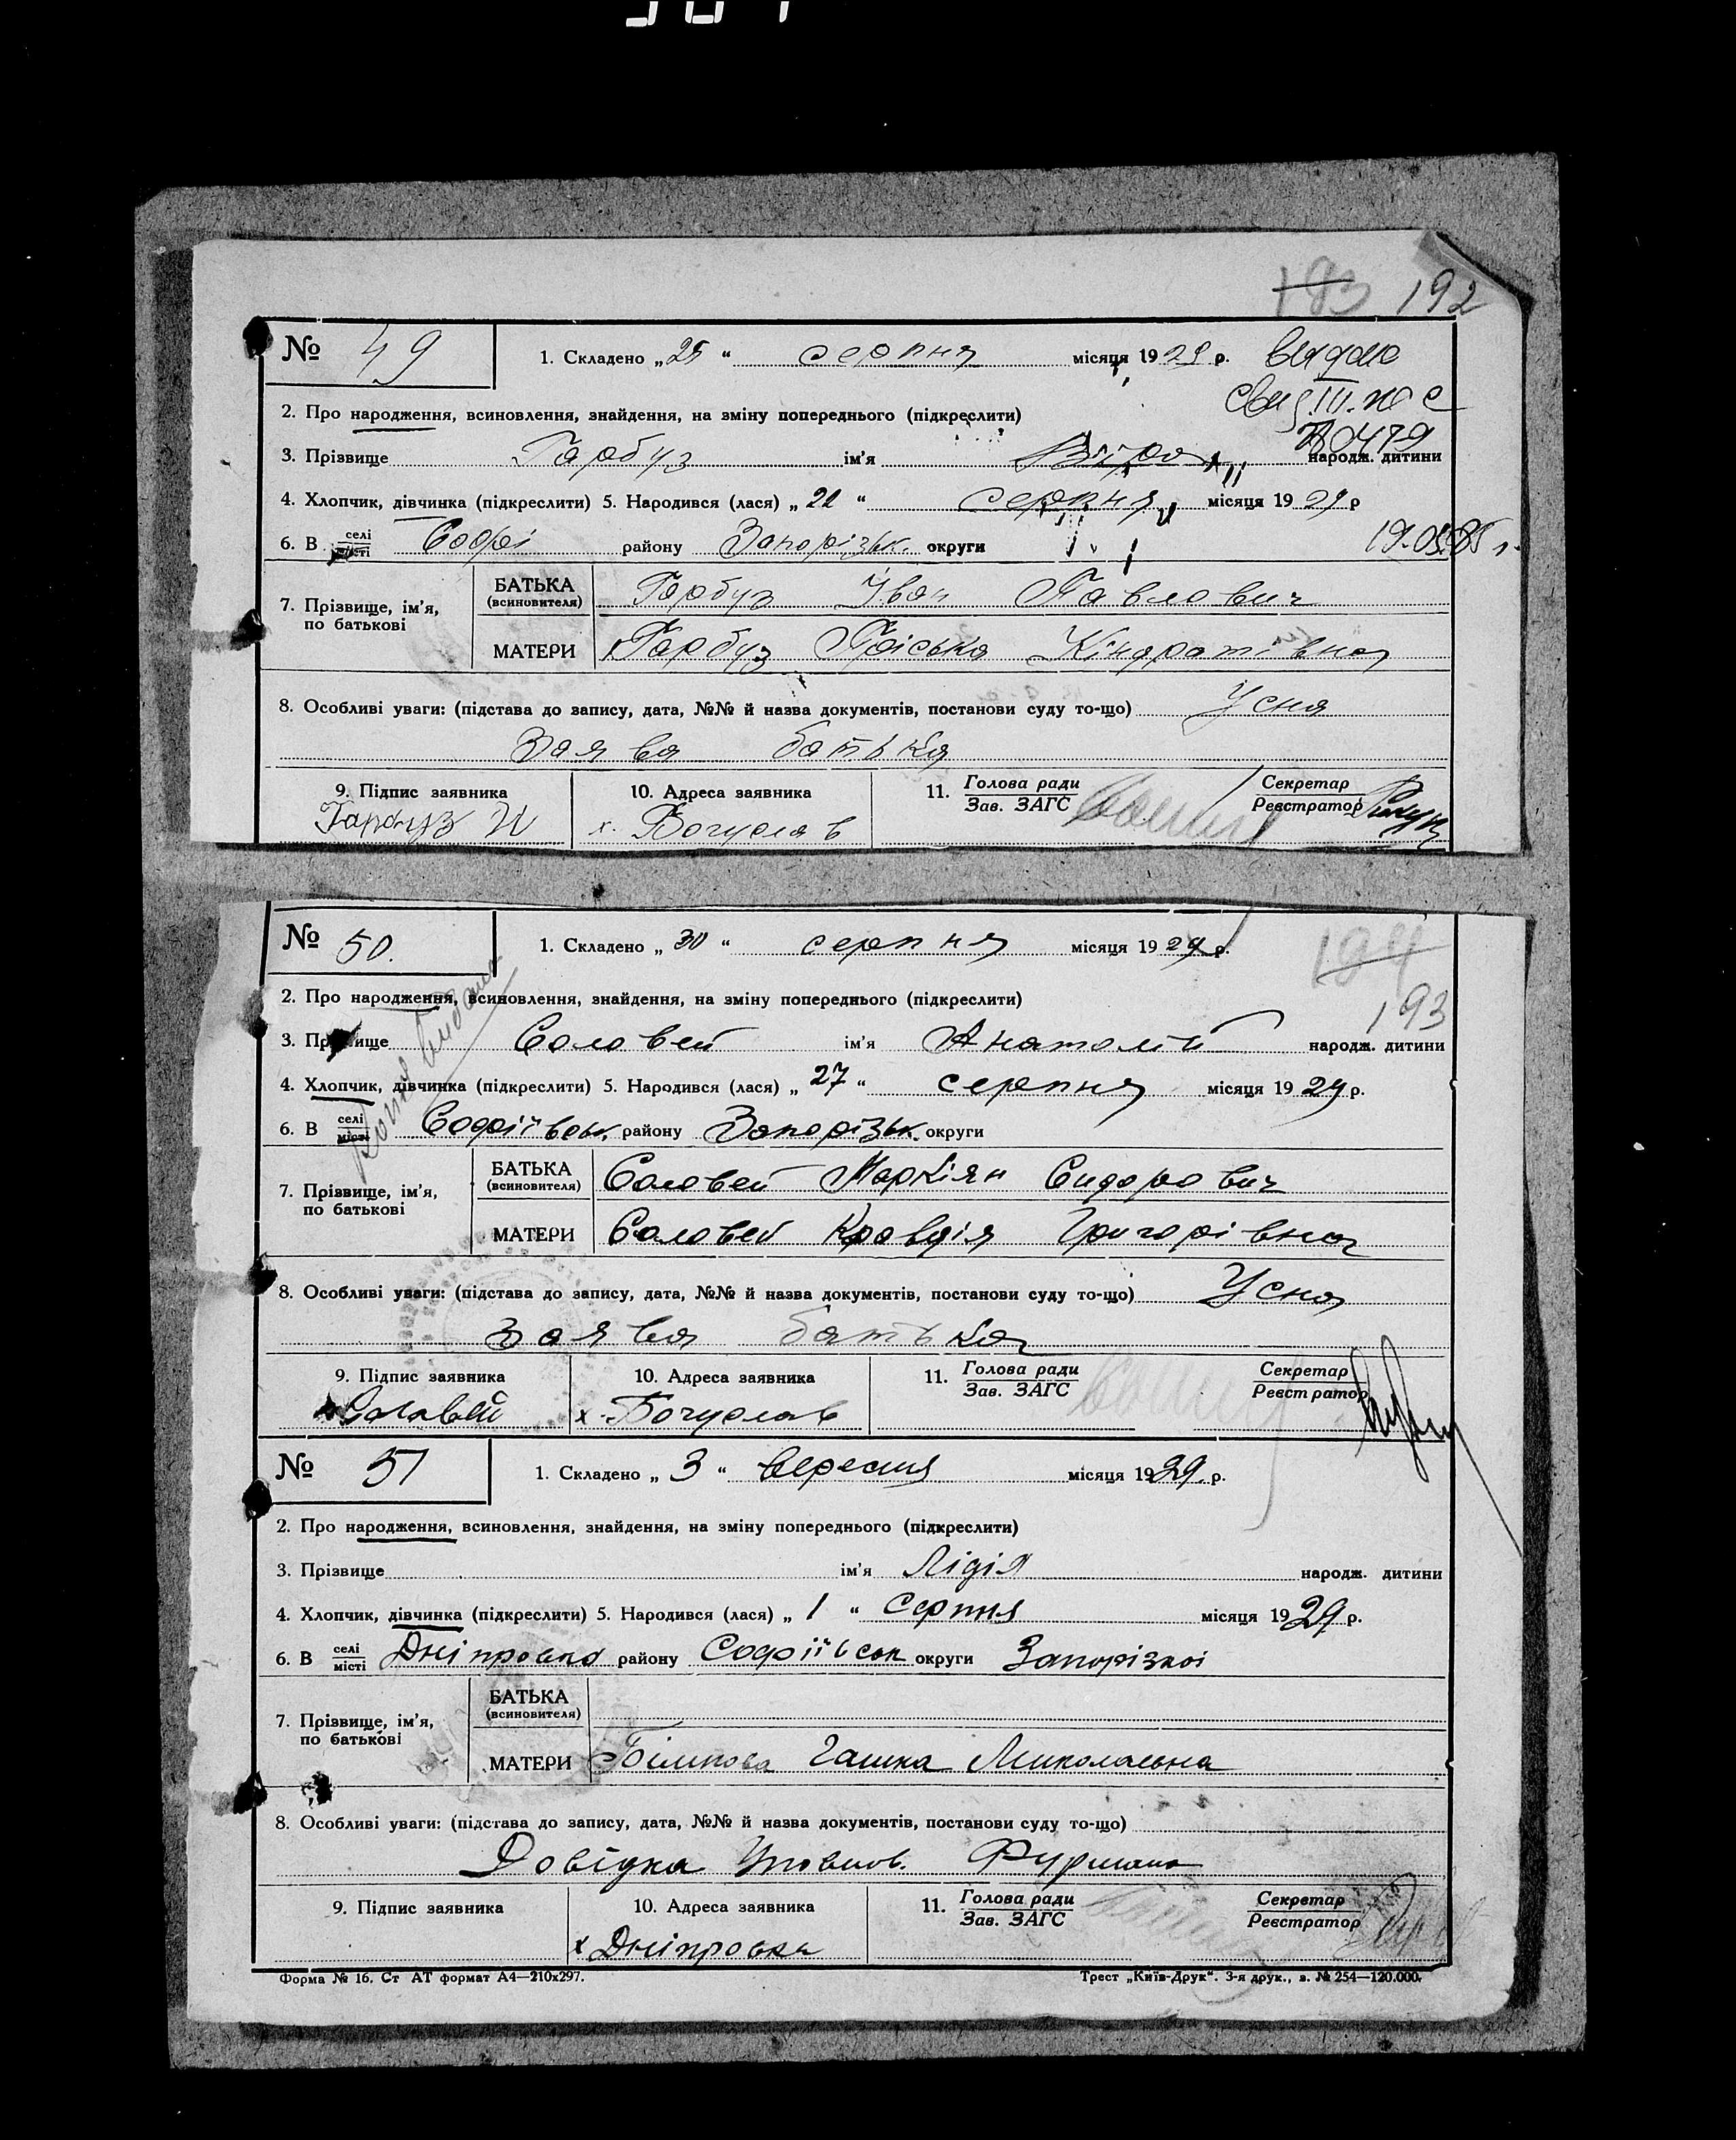 183 192
№ 49 1. Складено „25“ серпня місяця 1929 р. видано
свид. III. ЖС
2. Про народження, всиновлення, знайдення, на зміну попереднього (підкреслити)
№ 0479
3. Прізвище Гарбуз ім'я Віра народж. дитини
4. Хлопчик, дівчинка (підкреслити) 5. Народився (лася) „22“ серпня місяця 1929 р
6. В селі місті Софі району Запорізьк. округи 19.03.85 г.
7. Прізвище, ім'я, по батькові
БАТЬКА (всиновителя) Гарбуз Іван Павлович
МАТЕРИ Гарбуз Пріська Кіндратівна
8. Особливі уваги: (підстава до запису, дата, №№ й назва документів, постанови суду то-що) Усна
Заява батька
9. Підпис заявника 10. Адреса заявника 11. Голова ради Зав. ЗАГС Секретар Реєстратор
Гарбуз И х. Богуслав
№ 50. 1. Складено „30“ серпня місяця 1929 р.
194
2. Про народження, всиновлення, знайдення, на зміну попереднього (підкреслити)
193
3. Прізвище Соловей ім'я Анатолій народж. дитини
4. Хлопчик, дівчинка (підкреслити) 5. Народився (лася) „27“ серпня місяця 1929 р.
6. В селі місті Софіївськ. району Запорізьк. округи
7. Прізвище, ім'я, по батькові
БАТЬКА (всиновителя) Соловей Маркіян Сидорович
МАТЕРИ Соловей Кравдія Григорівна
8. Особливі уваги: (підстава до запису, дата, №№ й назва документів, постанови суду то-що) Усна
Заява батька
9. Підпис заявника 10. Адреса заявника 11. Голова ради Зав. ЗАГС Секретар Реєстратор
Соловей х. Богуслав
№ 51 1. Складено „3“ вересня місяця 1929 р.
2. Про народження, всиновлення, знайдення, на зміну попереднього (підкреслити)
3. Прізвище ім'я Лідія народж. дитини
4. Хлопчик, дівчинка (підкреслити) 5. Народився (лася) „1“ Серпня місяця 1929 р.
6. В селі місті Дніпровка району Софіївськ округи Запорізкоі
7. Прізвище, ім'я, по батькові
БАТЬКА (всиновителя)
МАТЕРИ Гашка Миколаевна
8. Особливі уваги: (підстава до запису, дата, №№ й назва документів, постанови суду то-що)
Довідка Уповнов. Фурмана
9. Підпис заявника 10. Адреса заявника 11. Голова ради Зав. ЗАГС Секретар Реєстратор
х Дніпровка
Форма № 16. Ст АТ формат А4—210х297. Трест „Київ-Друк“. 3-я друк., з. № 254—120.000.